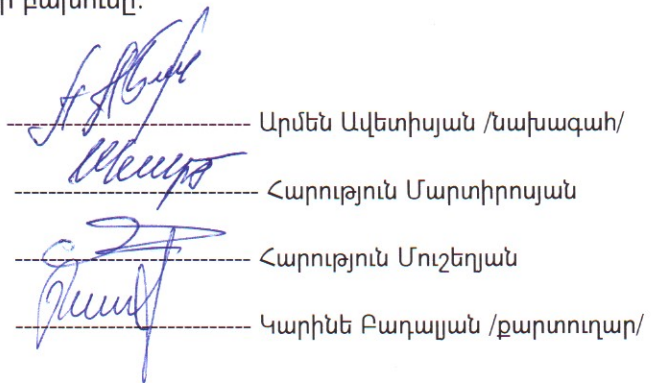 բախումը:
Արմեն Ավետիսյան /նախագահ/
Հարություն Մարտիրոսյան
Հարություն Մուշեղյան
Կարինե Բադալյան /քարտուղար/